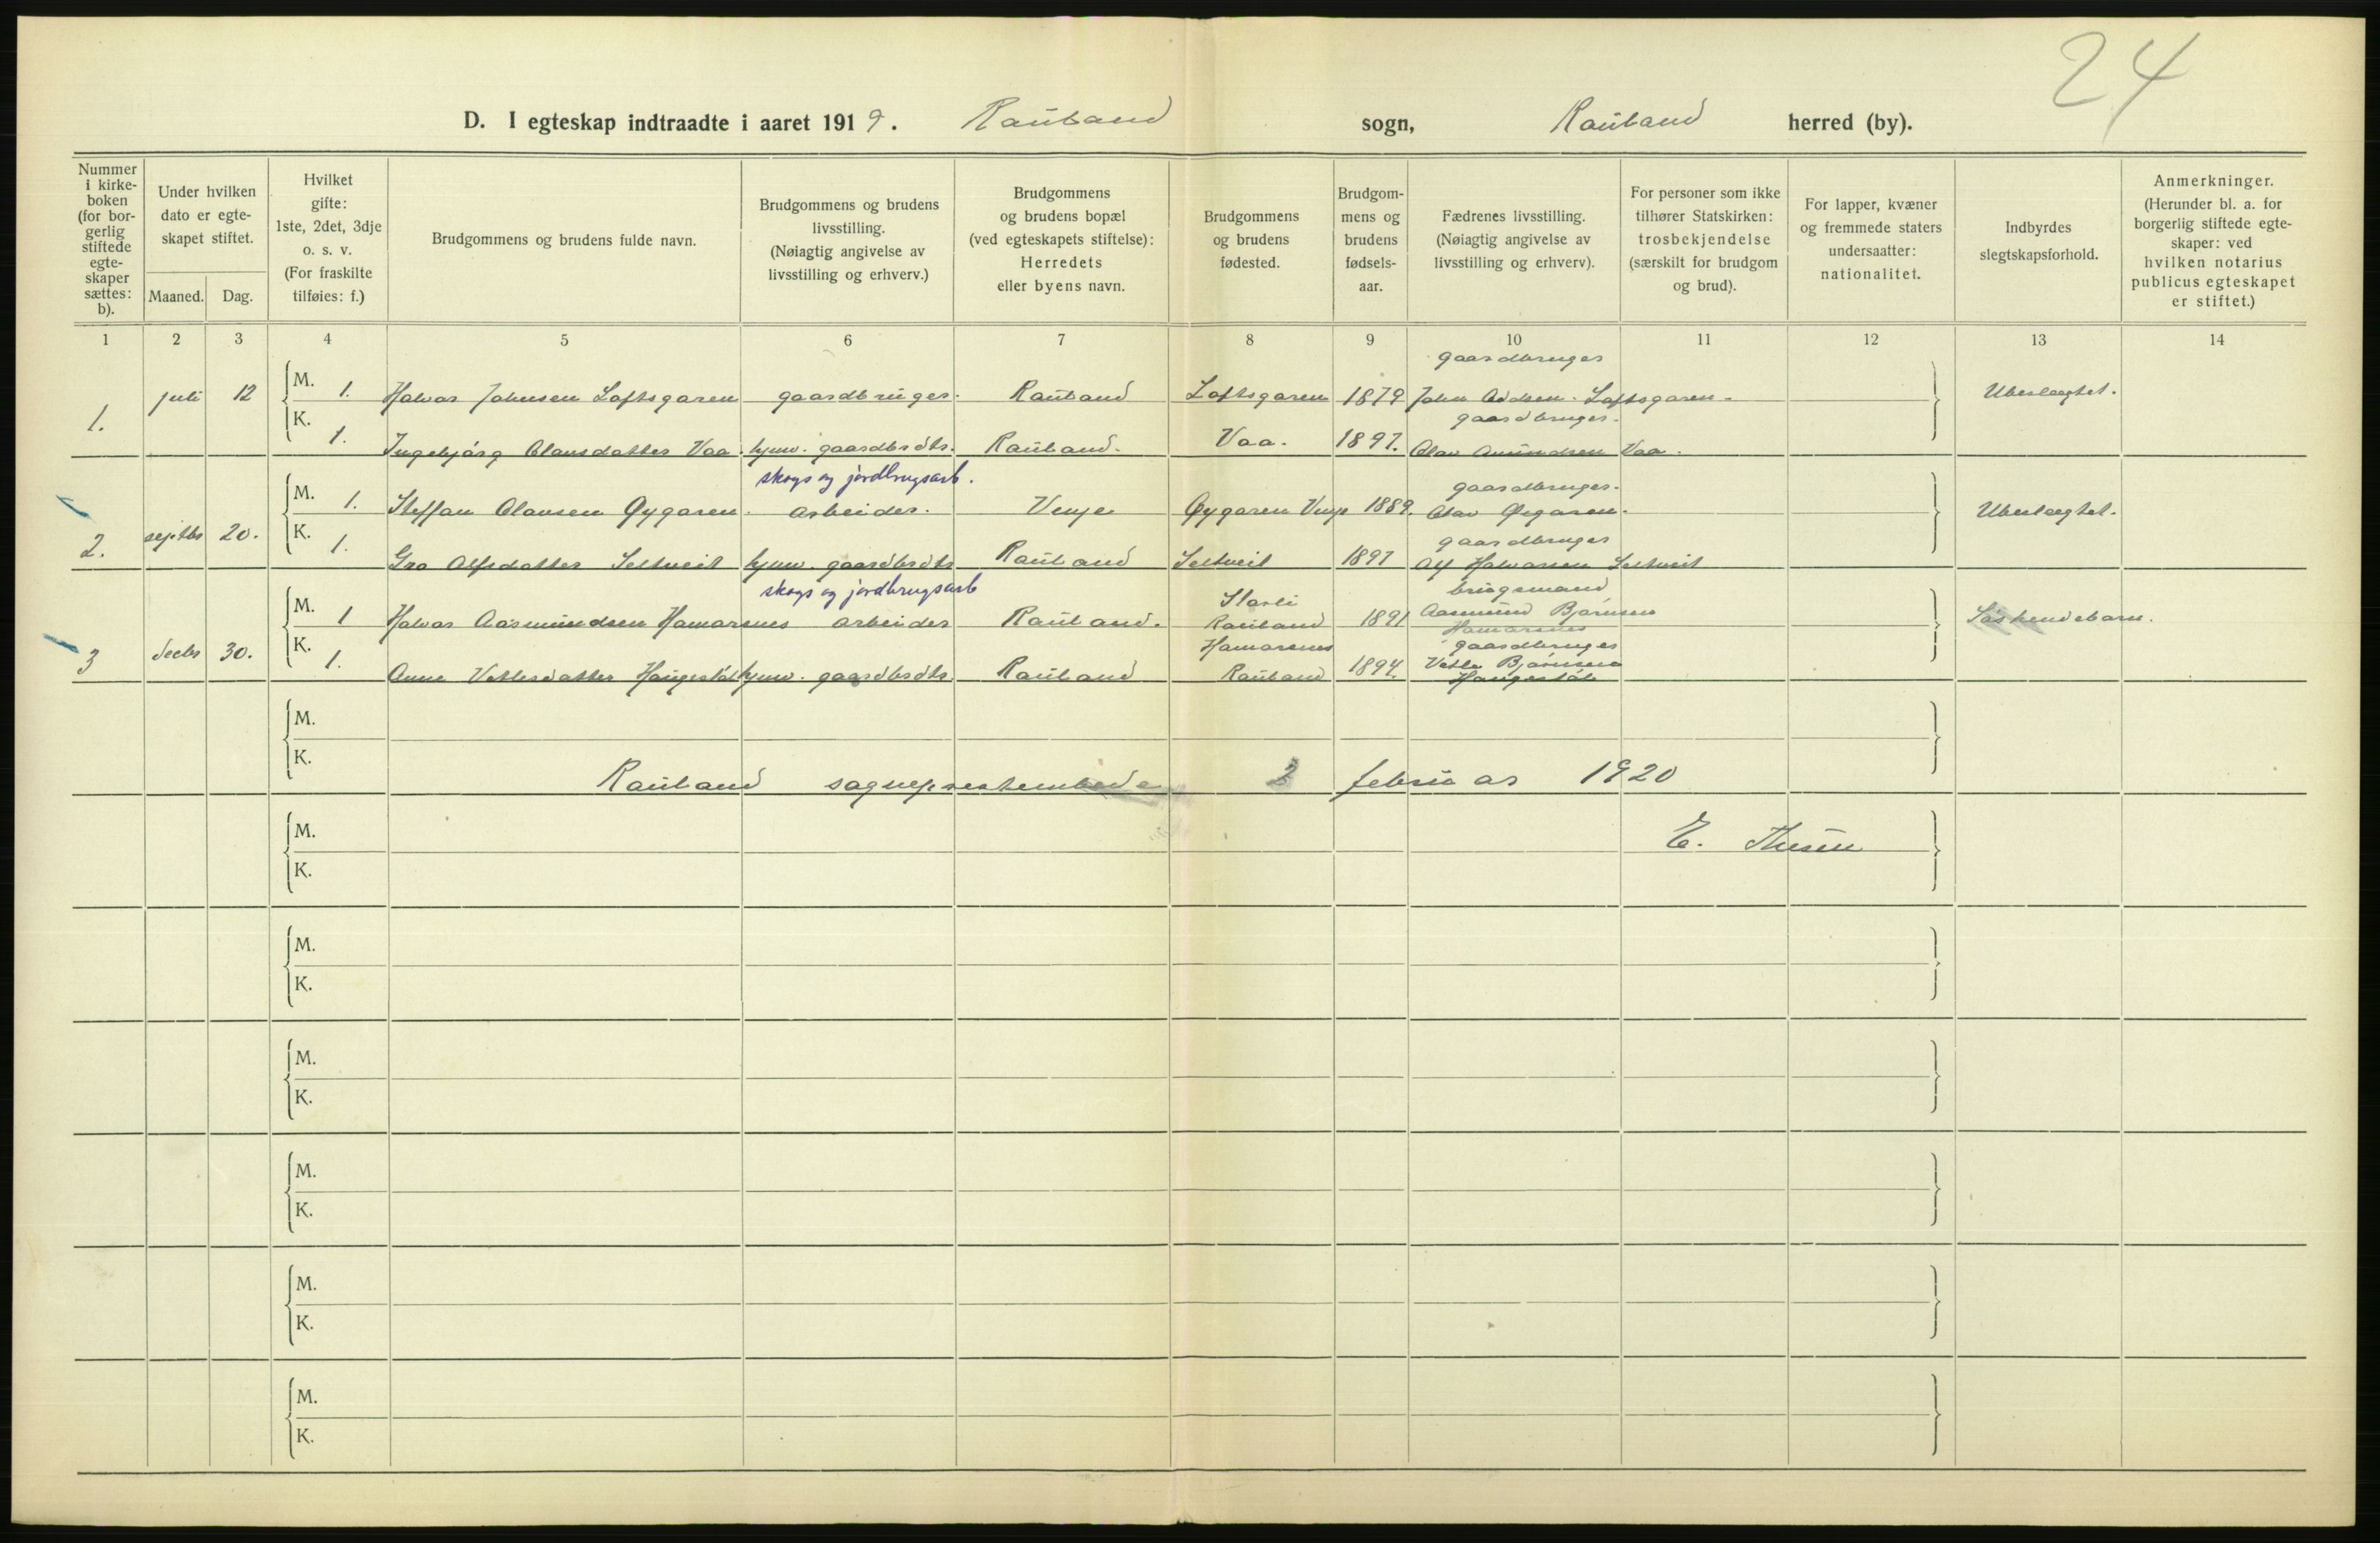 24
D. I egteskap indtraadte i aaret 1919. Rauland sogn, Rauland herred (by).
Nummer i kirke-boken (for bor-gerlig stiftede egte-skaper sættes: b).
Under hvilken dato er egte-skapet stiftet.
Maaned. Dag.
Hvilket gifte: 1ste, 2det, 3dje o. s. v. (For fraskilte tilføies: f.)
Brudgommens og brudens fulde navn.
Brudgommens og brudens livsstilling. (Nøiagtig angivelse av livsstilling og erhverv.)
Brudgommens og brudens bopæl (ved egteskapets stiftelse): Herredets eller byens navn.
Brudgommens og brudens fødested.
Brudgom-mens og brudens fødsels-aar.
Fædrenes livsstilling. (Nøiagtig angivelse av livsstilling og erhverv).
For personer som ikke tilhører Statskirken: trosbekjendelse (særskilt for brudgom og brud).
For lapper, kvæner og fremmede staters undersaatter: nationalitet.
Indbyrdes slegtskapsforhold.
Anmerkninger. (Herunder bl. a. for borgerlig stiftede egte-skaper: ved hvilken notarius publicus egteskapet er stiftet.)
1 2 3 4 5 6 7 8 9 10 11 12 13 14
gaardbruger
1. juli 12 M. 1. Halvor Johnsen Loftsgaren gaardbruger. Rauland Loftsgaren 1879 John Loftsgaren. Ubeslægtet.
gaardbruger.
K. 1. Ingebjørg Olavsdatter Vaa. hjmv. gaardbrdtr. Rauland. Vaa. 1897. Olav Amundsen Vaa.
skogs og jordbrugsarb. gaardbruger.
2. septbr 20. M. 1. Steffan Olavsen Øygaren. arbeider. Vinje Øygaren Vinje 1889. Olav Øygaren. Ubeslegtet.
gaardbruger
K. 1. Gro Alfsdatter Seltveit hjmv. gaardbrdtr Rauland Seltveit 1897 Alf Halvorsen Seltveit
skogs og jordbrugsarb brugsmand
3 decbr 30. M. 1 Halvor Aasmundsen Hamarsnes arbeider Rauland. Rauland 1891 Aasmund Bjørnsen Hamarsnes Søskendebarn.
Hamarsnes gaardbruger
K. 1. Anne Vetlesdatter Haugestøl hjmv. gaardbrdtr Rauland Rauland 1894. Vetle Bjørnsen Haugestøl
M.
K.
Rauland sogneprestembede 2 februar 1920
M.
E. Thesen
K.
M.
K.
M.
K.
M.
K.
M.
K.
M.
K.